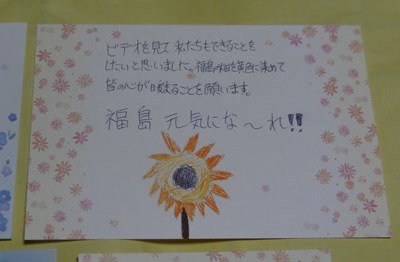 ビデオを見て 私たちもできることを
したいと思いました。福島の畑を黄色に染めて
皆の心が日晴まることを願います。
福島 元気にな〜れ!!